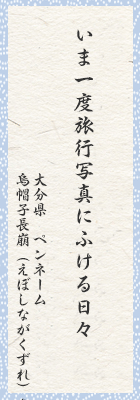 いま一度旅行写真にふける日々
大分県　ペンネーム
烏帽子長崩（えぼしながくずれ）